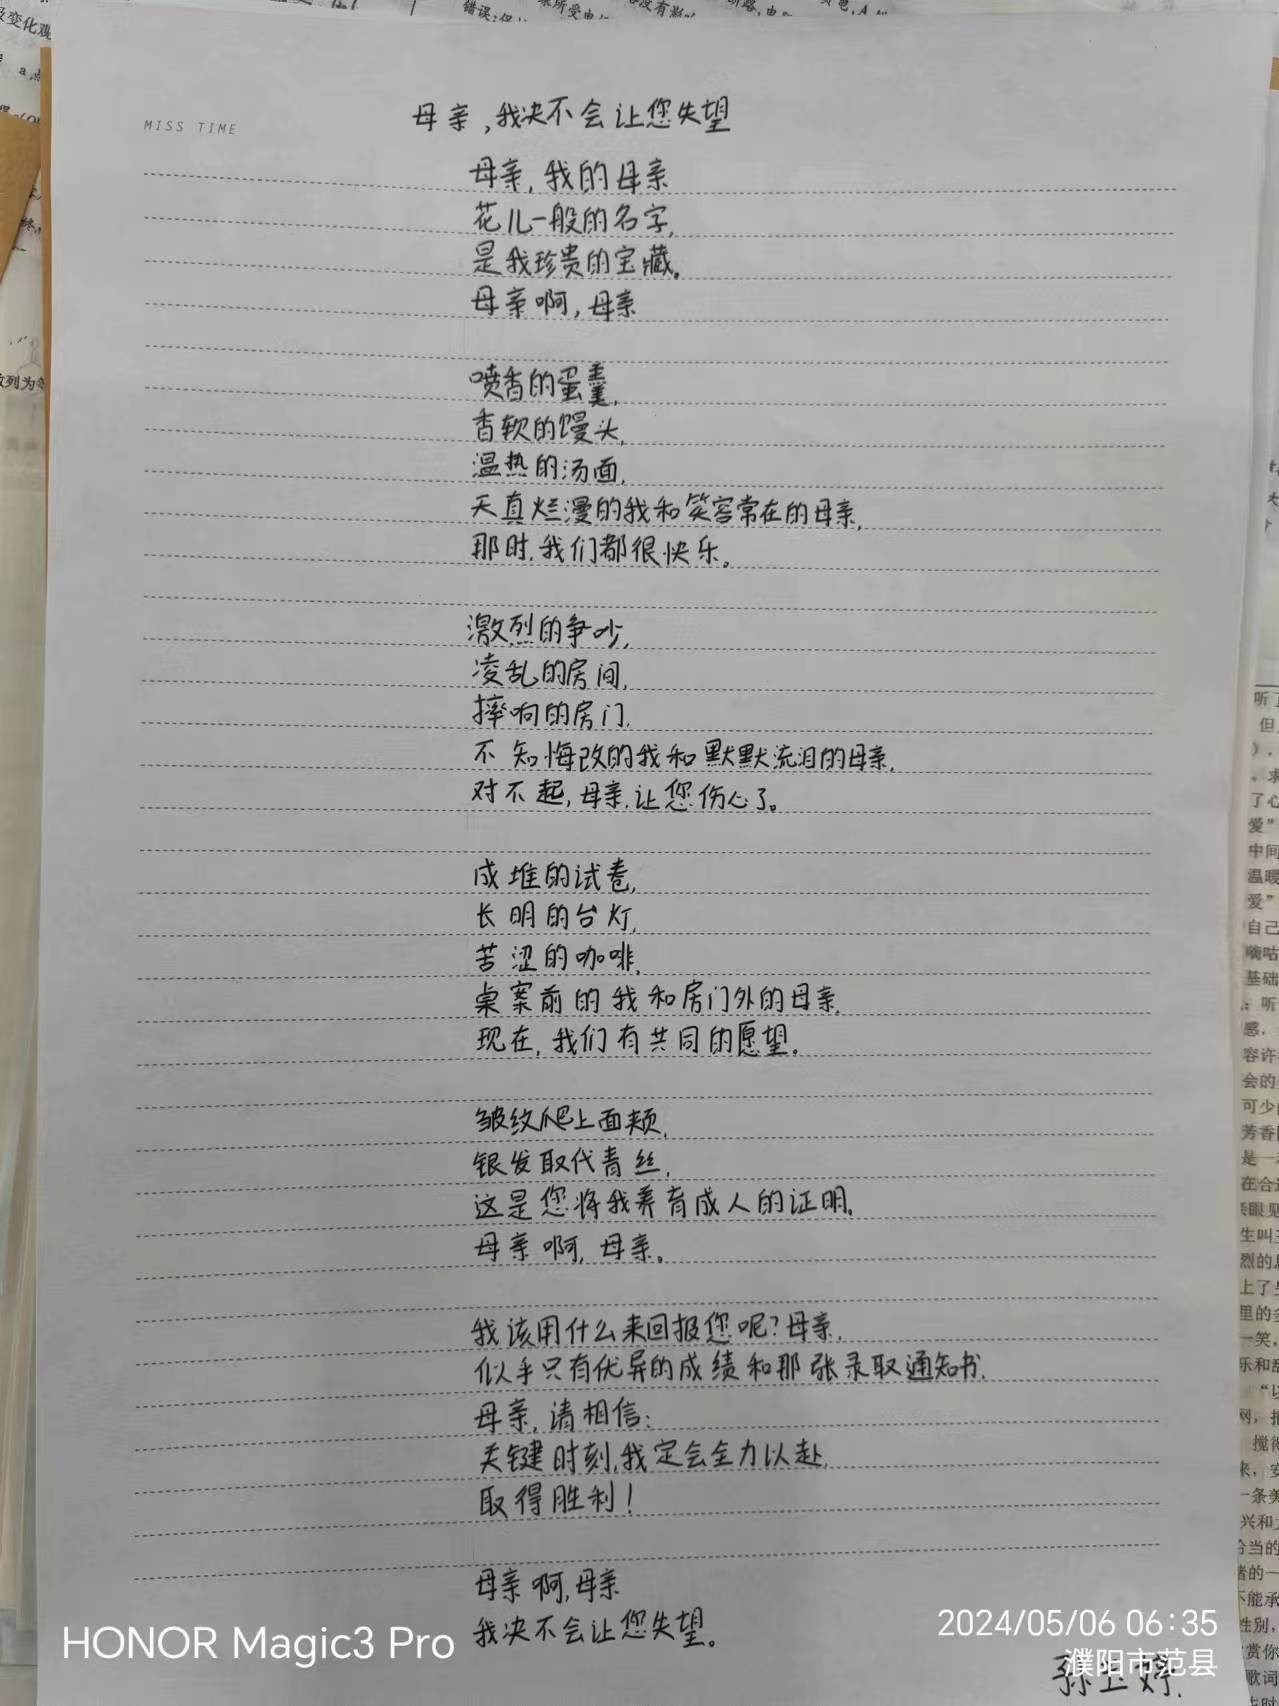 MISS TIME
母亲,我决不会让您失望
母亲,我的母亲
花儿一般的名字,
是我珍贵的宝藏。
母亲啊,母亲
喷香的蛋羹,
香软的馒头,
温热的汤面,
天真烂漫的我和笑容常在的母亲,
那时,我们都很快乐。
激烈的争吵,
凌乱的房间,
摔响的房门,
不知悔改的我和默默流泪的母亲,
对不起,母亲,让您伤心了。
成堆的试卷,
长明的台灯,
苦涩的咖啡,
桌案前的我和房门外的母亲,
现在,我们有共同的愿望。
皱纹爬上面颊,
银发取代青丝,
这是您将我养育成人的证明。
母亲啊,母亲。
我该用什么来回报您呢?母亲,
似乎只有优异的成绩和那张录取通知书,
母亲,请相信:
关键时刻,我定会全力以赴,
取得胜利!
母亲啊,母亲
我决不会让您失望。
HONOR Magic3 Pro
2024/05/06 06:35
濮阳市范县